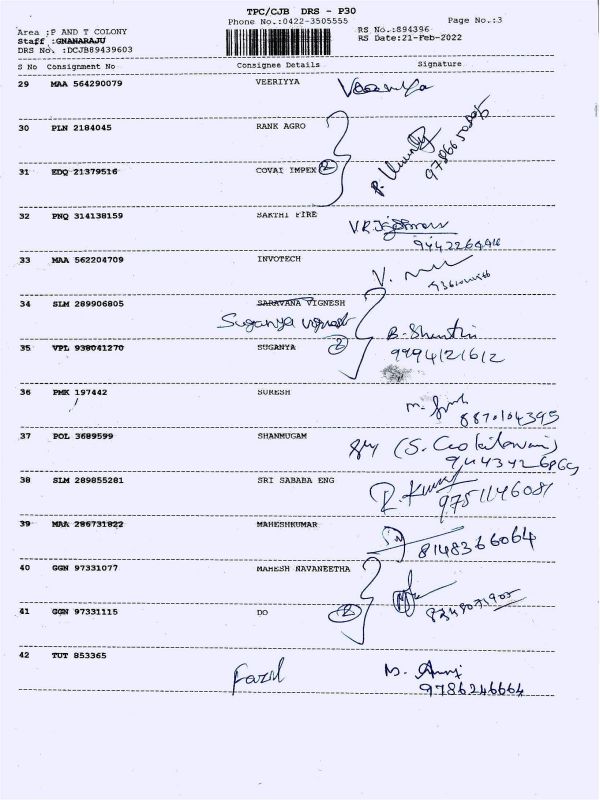 TPC/CJB DRS - P30
Phone No.:0422-3505555
Page No.:3
Area :P AND T COLONY
RS No.:894396
Staff :GNANARAJU
RS Date:21-Feb-2022
DRS No. :DCJB89439603
S No Consignment No Consignee Details Signature
29 MAA 564290079 VEERIYYA
30 PLN 2184045 RANK AGRO
31 EDQ 21379516 COVAI IMPEX 2
32 PNQ 314138159 SAKTHI FIRE
33 MAA 562204709 INVOTECH
34 SLM 289906805 SARAVANA VIGNESH
Suganya
B. Shanthi
35 VPL 938041270 SUGANYA 2
9994121612
36 PMK 197442 SURESH
8870104395
37 POL 3689599 SHANMUGAM
38 SLM 289855281 SRI SABABA ENG
R. Kumar
9751146081
39 MAA 286731822 MAHESHKUMAR
8148366064
40 GGN 97331077 MAHESH NAVANEETHA
41 GGN 97331115 DO 2
42 TUT 853365
Fazil
9786246664